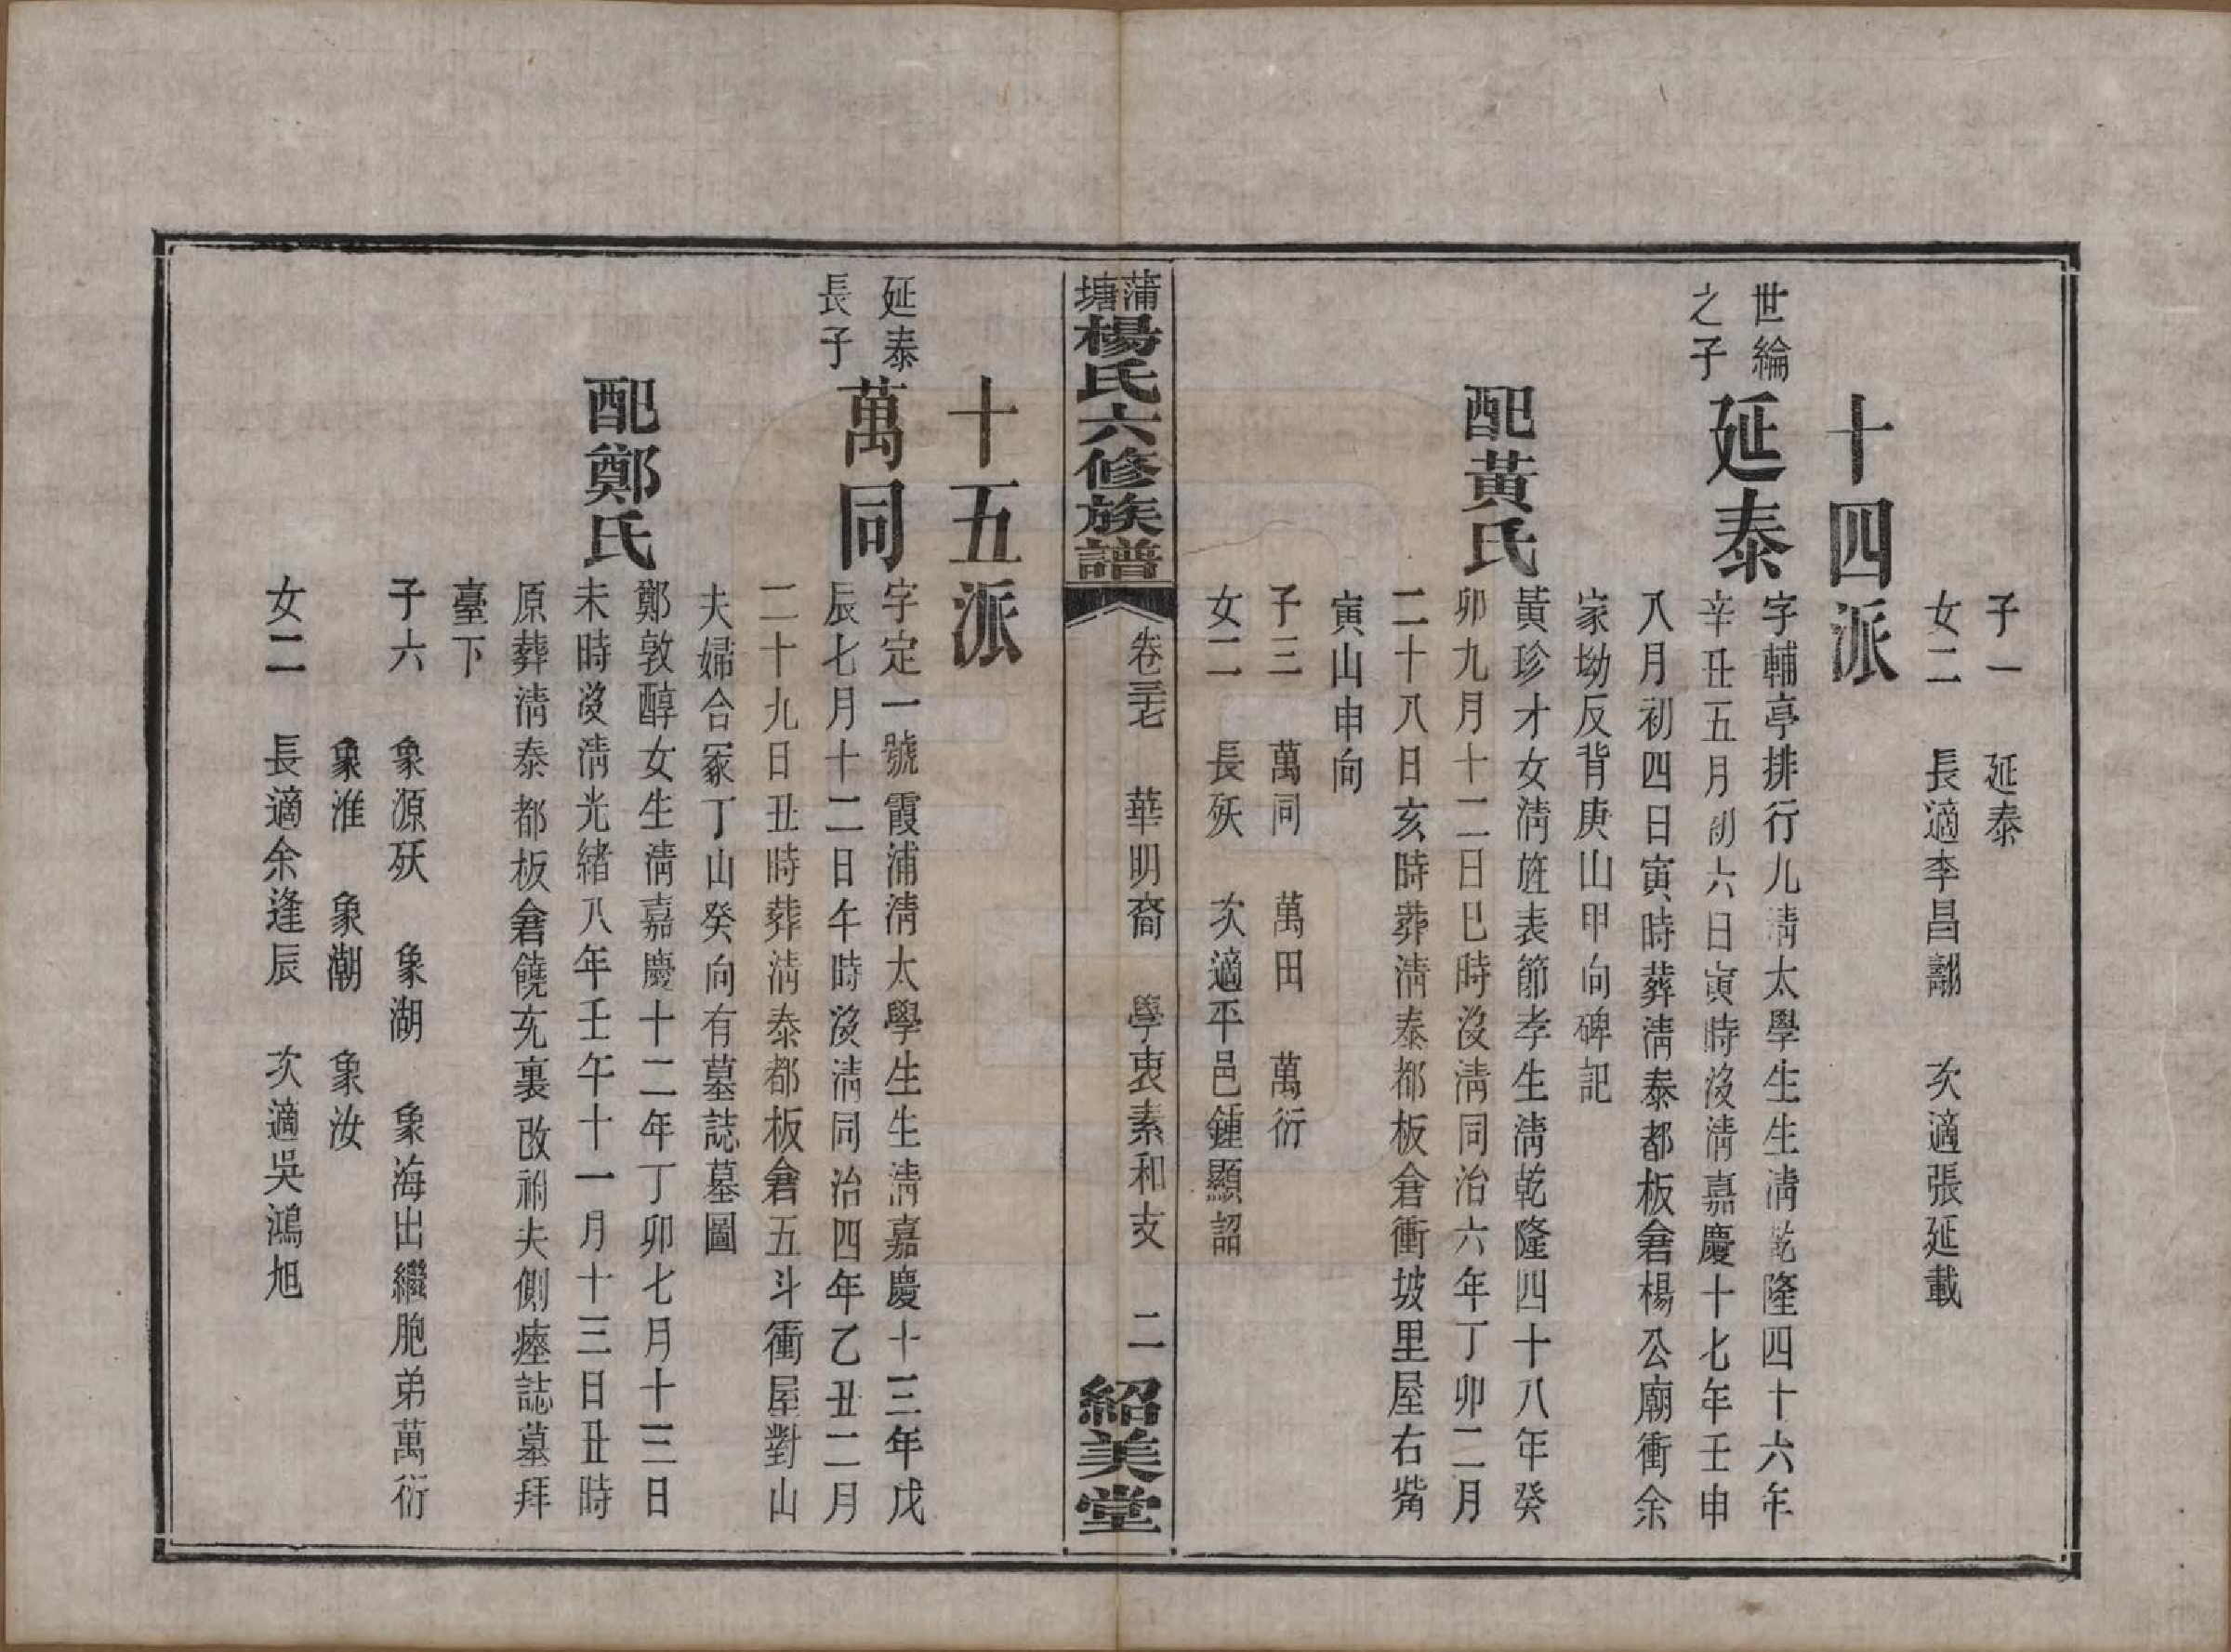 子一　延泰
女二　長適李昌翮　次適張延載
十四派
世綸之子
延泰
字輔亭排行九淸太學生生淸乾隆四十六年
辛丑五月初六日寅時沒淸嘉慶十七年壬申
八月初四日寅時葬淸泰都板倉楊公廟衝余
家坳反背庚山甲向碑記
配黃氏
黃珍才女淸旌表節孝生淸乾隆四十八年癸
卯九月十二日巳時沒淸同治六年丁卯二月
二十八日亥時葬淸泰都板倉衝坡里屋右嘴
寅山申向
子三　萬同　萬田　萬衍
女二　長殀　次適平邑鍾顯詔
蒲塘楊氏六修族譜　卷三十七　華明裔　學衷素和支　二　紹美堂
十五派
延泰長子
萬同
字定一號霞浦淸太學生生淸嘉慶十三年戊
辰七月十二日午時沒淸同治四年乙丑二月
二十九日丑時葬淸泰都板倉五斗衝屋對山
夫婦合冢丁山癸向有墓誌墓圖
配鄭氏
鄭敦醇女生淸嘉慶十二年丁卯七月十三日
未時沒淸光緒八年壬午十一月十三日丑時
原葬淸泰都板倉饒充裏改祔夫側瘞誌墓拜
臺下
子六　象源殀　象湖　象海出繼胞弟萬衍
象淮　象潮　象汝
女二　長適余逢辰　次適吳鴻旭